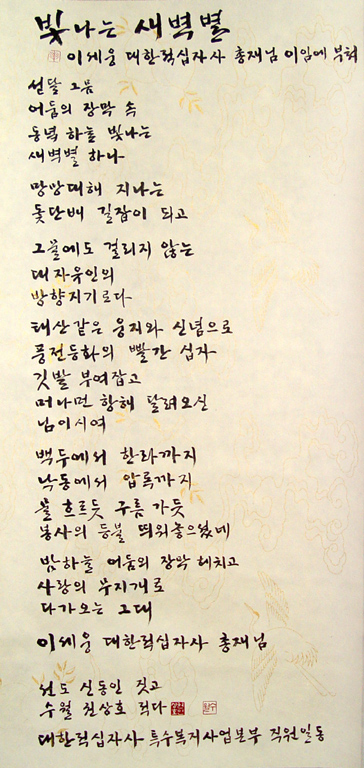 빛나는 새벽별
이세웅 대한적십자사 총재님 이임에 부쳐
섣달 그믐
어둠의 장막 속
동녘 하늘 빛나는
새벽별 하나
망망대해 지나는
돛단배 길잡이 되고
그물에도 걸리지 않는
대자유인의
방향지기로다
태산같은 웅지와 신념으로
풍전등화의 빨간 십자
깃발 부여잡고
머나먼 항해 달려오신
님이시여
백두에서 한라까지
낙동에서 압록까지
물 흐르듯 구름 가듯
봉사의 등불 띄워놓으셨네
밤하늘 어둠의 장막 헤치고
사랑의 무지개로
다가오는 그대
이세웅 대한적십자사 총재님
선도 신동인 짓고
수월 전상호 적다
대한적십자사 특수복지사업본부 직원일동